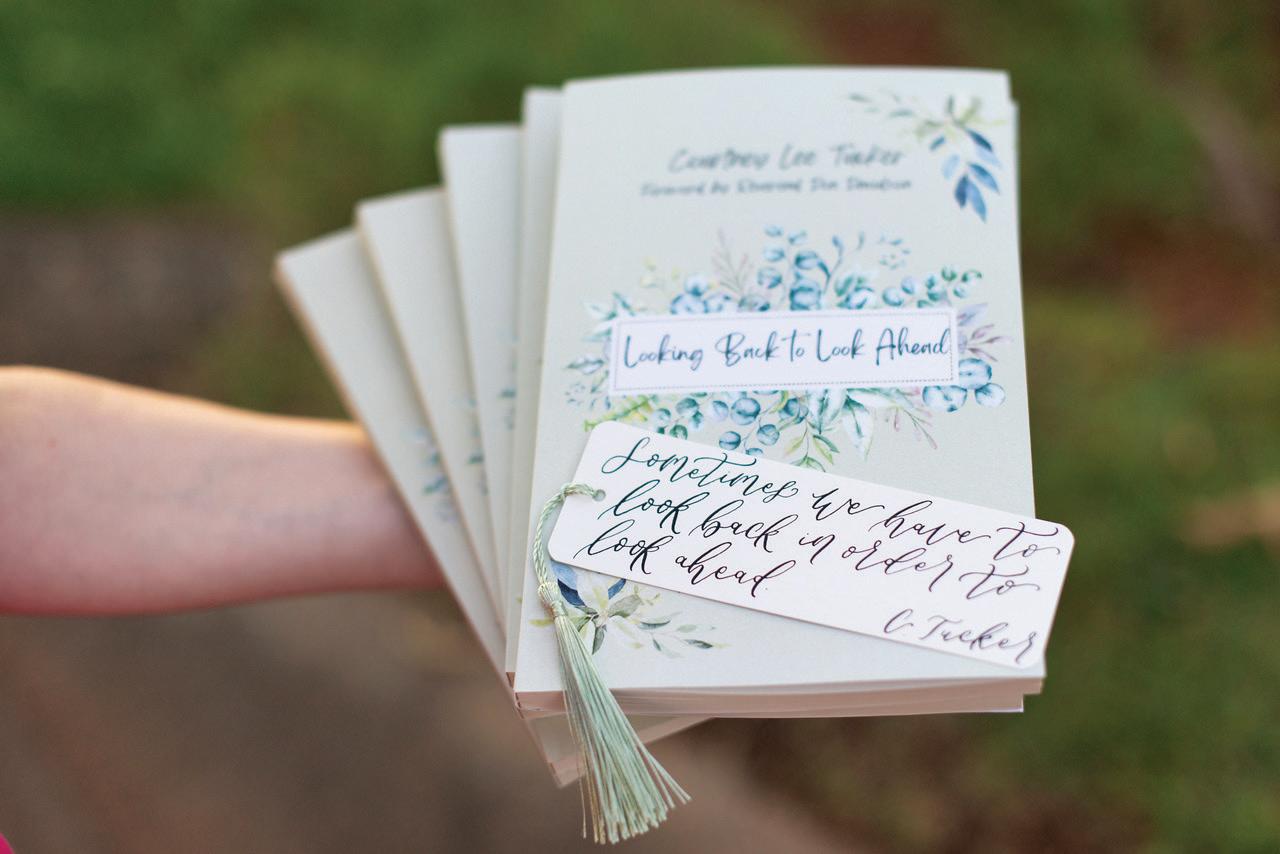 Courtney Lee Tucker
Foreword by Reverend Don Davidson
Looking Back to Look Ahead
Sometimes we have to
look back in order to
look ahead.
C. Tucker